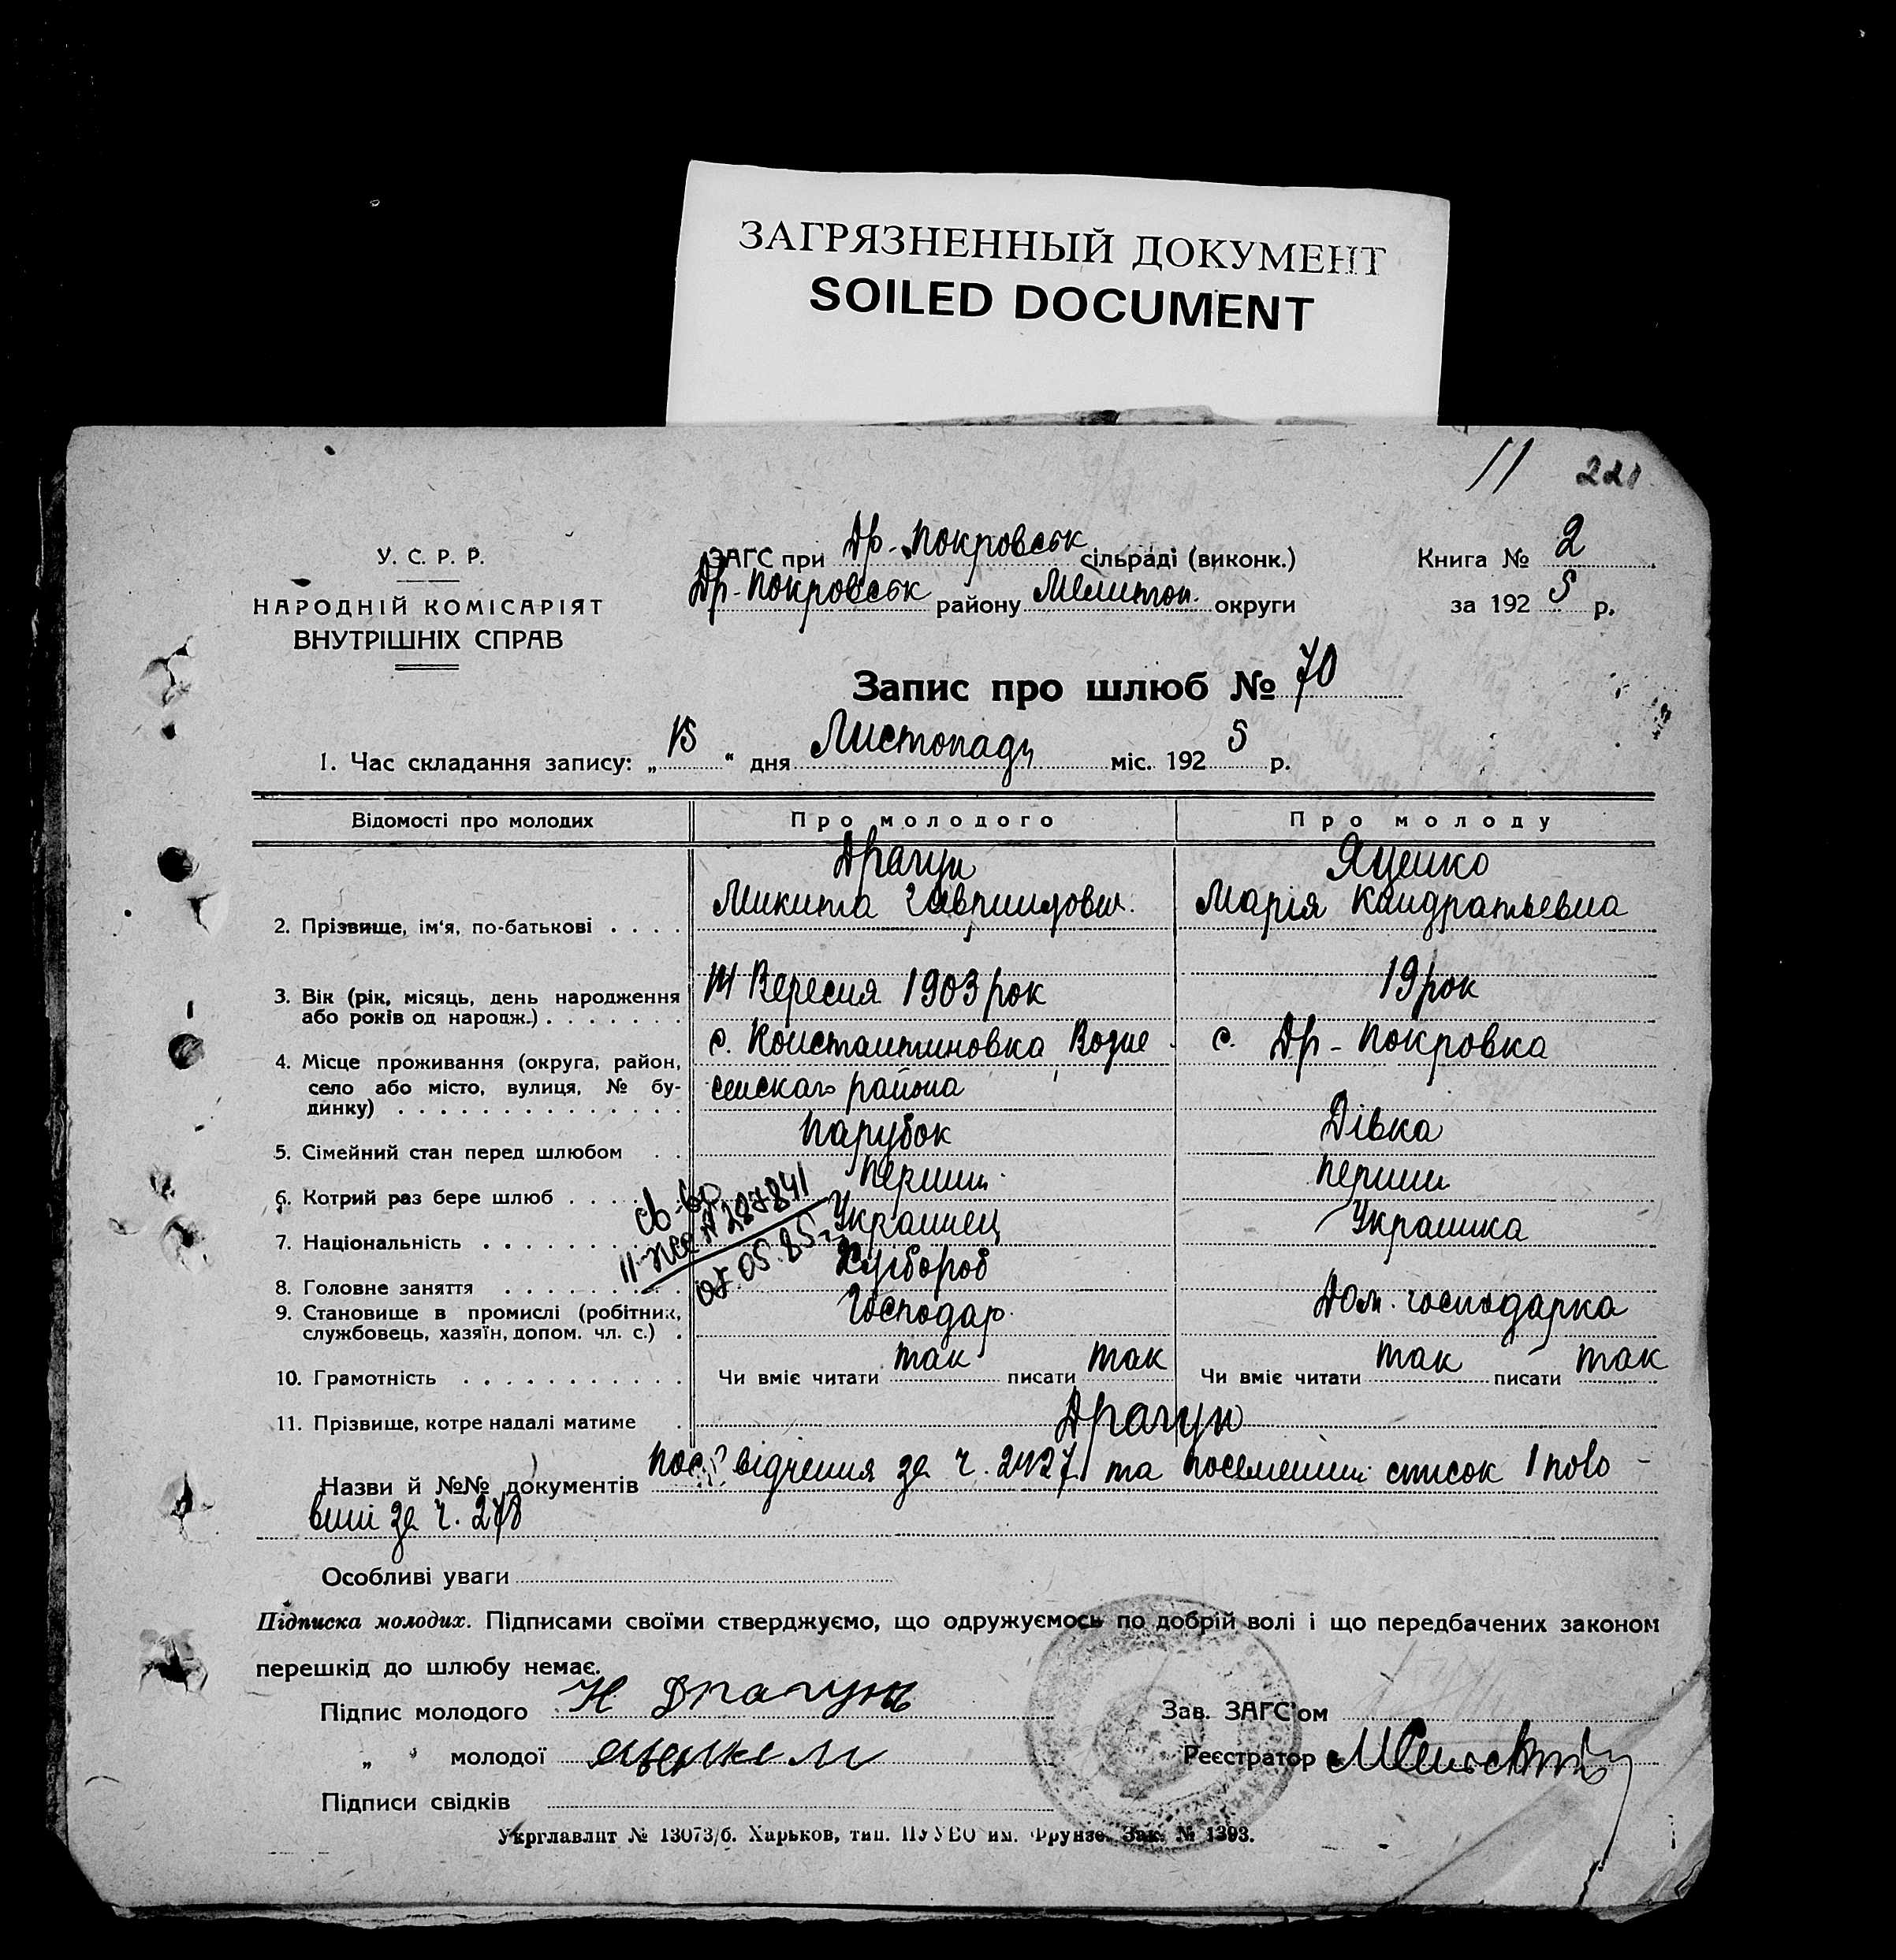 ЗАГРЯЗНЕННЫЙ ДОКУМЕНТ
SOILED DOCUMENT
11 220
У. С. Р. Р.
НАРОДНІЙ КОМІСАРІЯТ
ВНУТРІШНІХ СПРАВ
ЗАГС при Др-Покровськ сільраді (виконк.)
Др-Покровськ району Мелитоп. округи
Книга № 2
за 192 5 р.
Запис про шлюб № 70
1. Час складання запису: „ “ дня Листопаду міс. 192 5 р.
Відомості про молодих Про молодого Про молоду
2. Прізвище, ім'я, по-батькові . . . . Драгун Микита Гавриилович. Яценко Марія Кандратьевна
3. Вік (рік, місяць, день народження або років од народж.) . . . . . . . 14 Вересня 1903 рок 19 рок
4. Місце проживання (округа, район, село або місто, вулиця, № будинку) . . . . . . . . . . . . . . с. Константиновка Возне сенскаго района с. Др-Покровка
5. Сімейний стан перед шлюбом . . Парубок Дівка
6. Котрий раз бере шлюб . . . . . перший перший
7. Національність . . . . . . . Украинец Украинка
8. Головне заняття . . . . . . . . . Хлібороб
9. Становище в промислі (робітник, службовець, хазяїн, допом. чл. с.) . Господар. Дом. господарка
10. Грамотність . . . . . . . . . . . Чи вміє читати так писати так Чи вміє читати так писати так
11. Прізвище, котре надалі матиме . Драгун
св-во
II-ЖС № 287841
07.05.85г.
Назви й №№ документів посвідчення за ч. 2427 та посемейний список 1 поло-
вині за ч. 278
Особливі уваги
Підписка молодих. Підписами своїми стверджуємо, що одружуємось по добрій волі і що передбачених законом
перешкід до шлюбу немає.
Підпис молодого Н Драгунъ
Зав. ЗАГС'ом
„ “ молодої
Реєстратор
Підписи свідків
Укрглавліт № 13073/б. Харьков, тип. ПУУВО им. Фрунзе. Зак. № 1393.